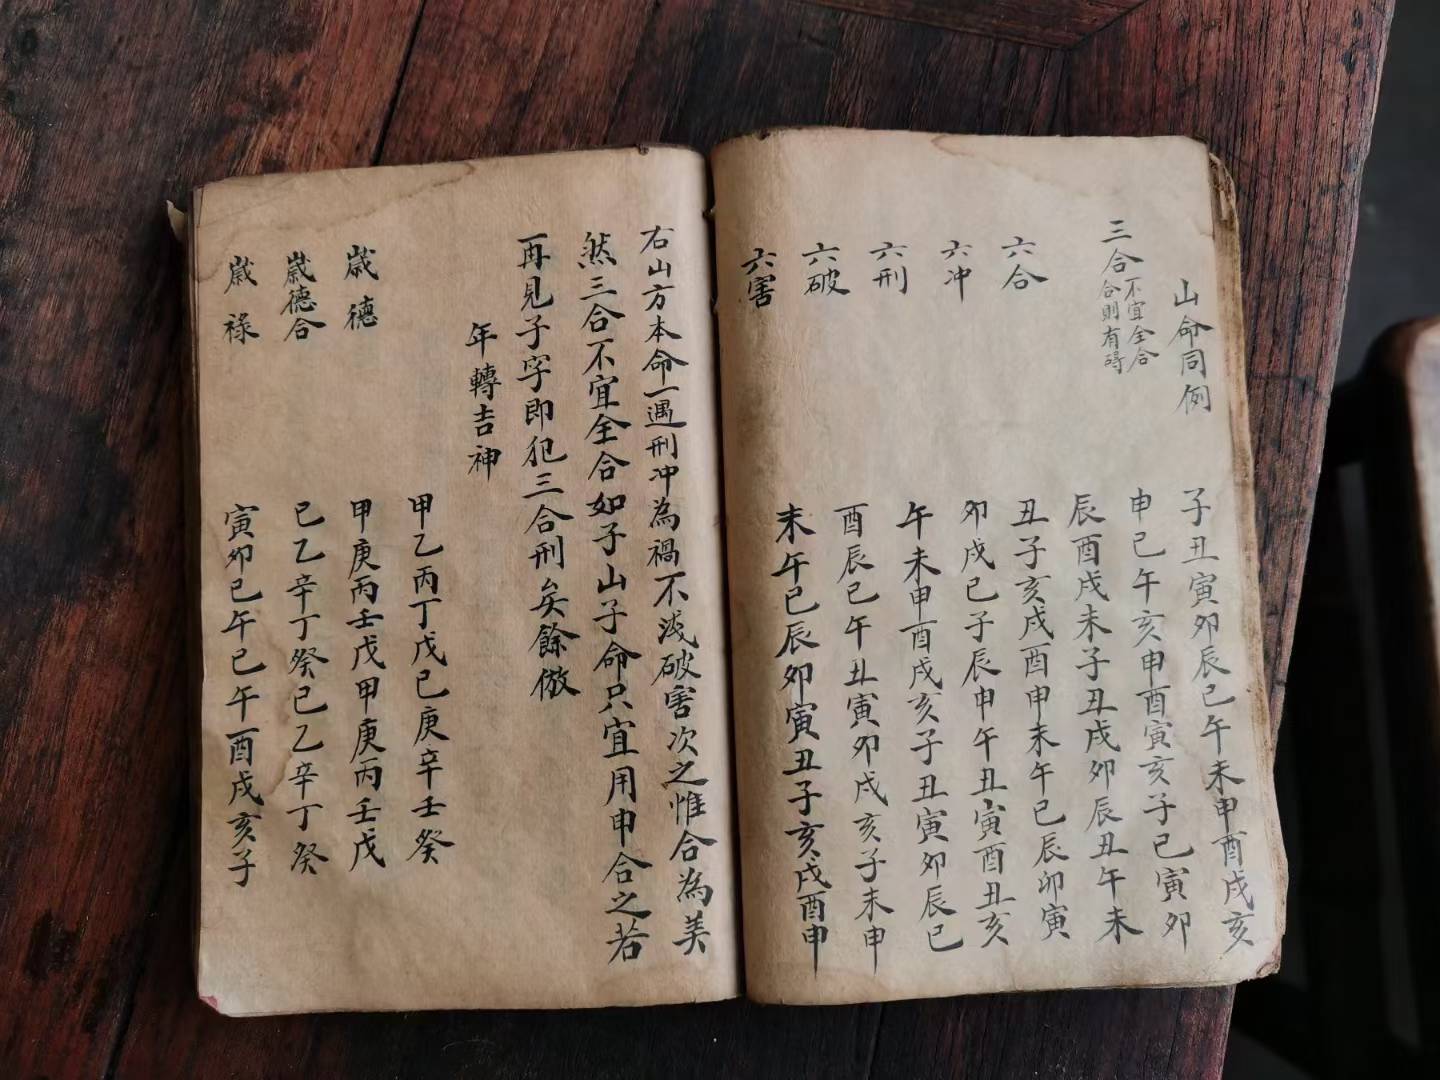 山命同例 子丑寅卯辰巳午未申酉戌亥
三合 不宜全合
合則有碍
申巳午亥申酉寅亥子巳寅卯
辰酉戌未子丑戌卯辰丑午未
六合 丑子亥戌酉申未午巳辰卯寅
六冲 卯戌巳子辰申午丑寅酉丑亥
六刑 午未申酉戌亥子丑寅卯辰巳
六破 酉辰巳午丑寅卯戌亥子未申
六害 未午巳辰卯寅丑子亥戌酉申
右山方本命一遇刑冲為禍不浅破害次之惟合為美
然三合不宜全合如子山子命只宜用申合之若
再見子字即犯三合刑矣餘倣
年轉吉神
甲乙丙丁戊己庚辛壬癸
歲德 甲庚丙壬戊甲庚丙壬戊
歲德合 己乙辛丁癸己乙辛丁癸
歲祿 寅卯巳午巳午酉戌亥子